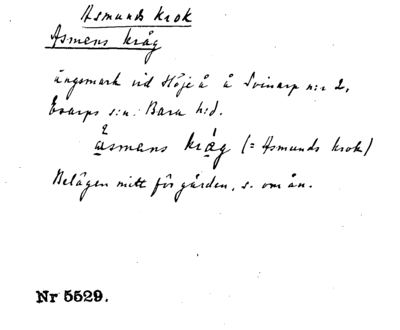 Asmunds krok
Asmens kråg
ängsmark vid Höje å å Svinarp n:r 2,
Esarps s:n. Bara h:d.
asmans kråg (= Asmunds krok)
Belägen mitt för gården, s. om ån.
Nr 5529.